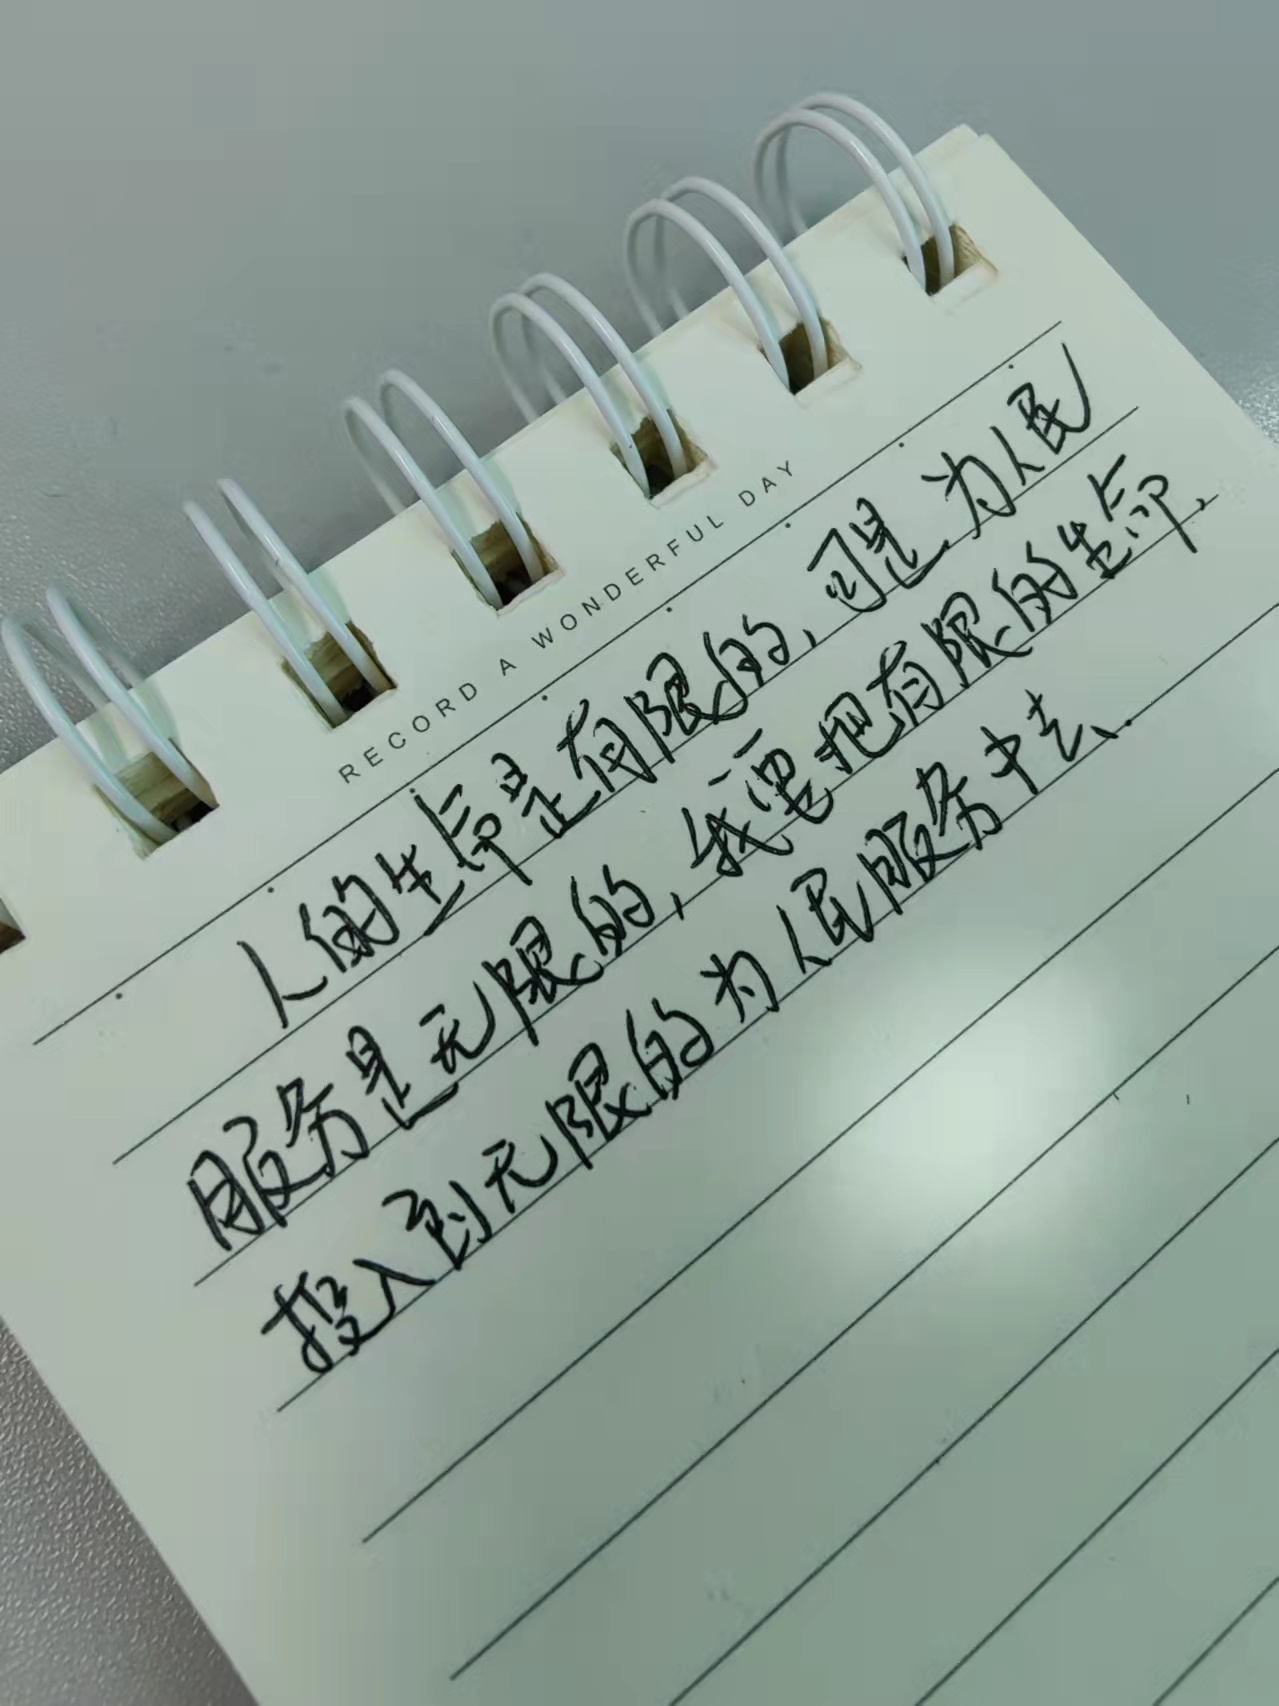 RECORD A WONDERFUL DAY
人的生命是有限的，可是为人民
服务是无限的，我要把有限的生命，
投入到无限的为人民服务中去.